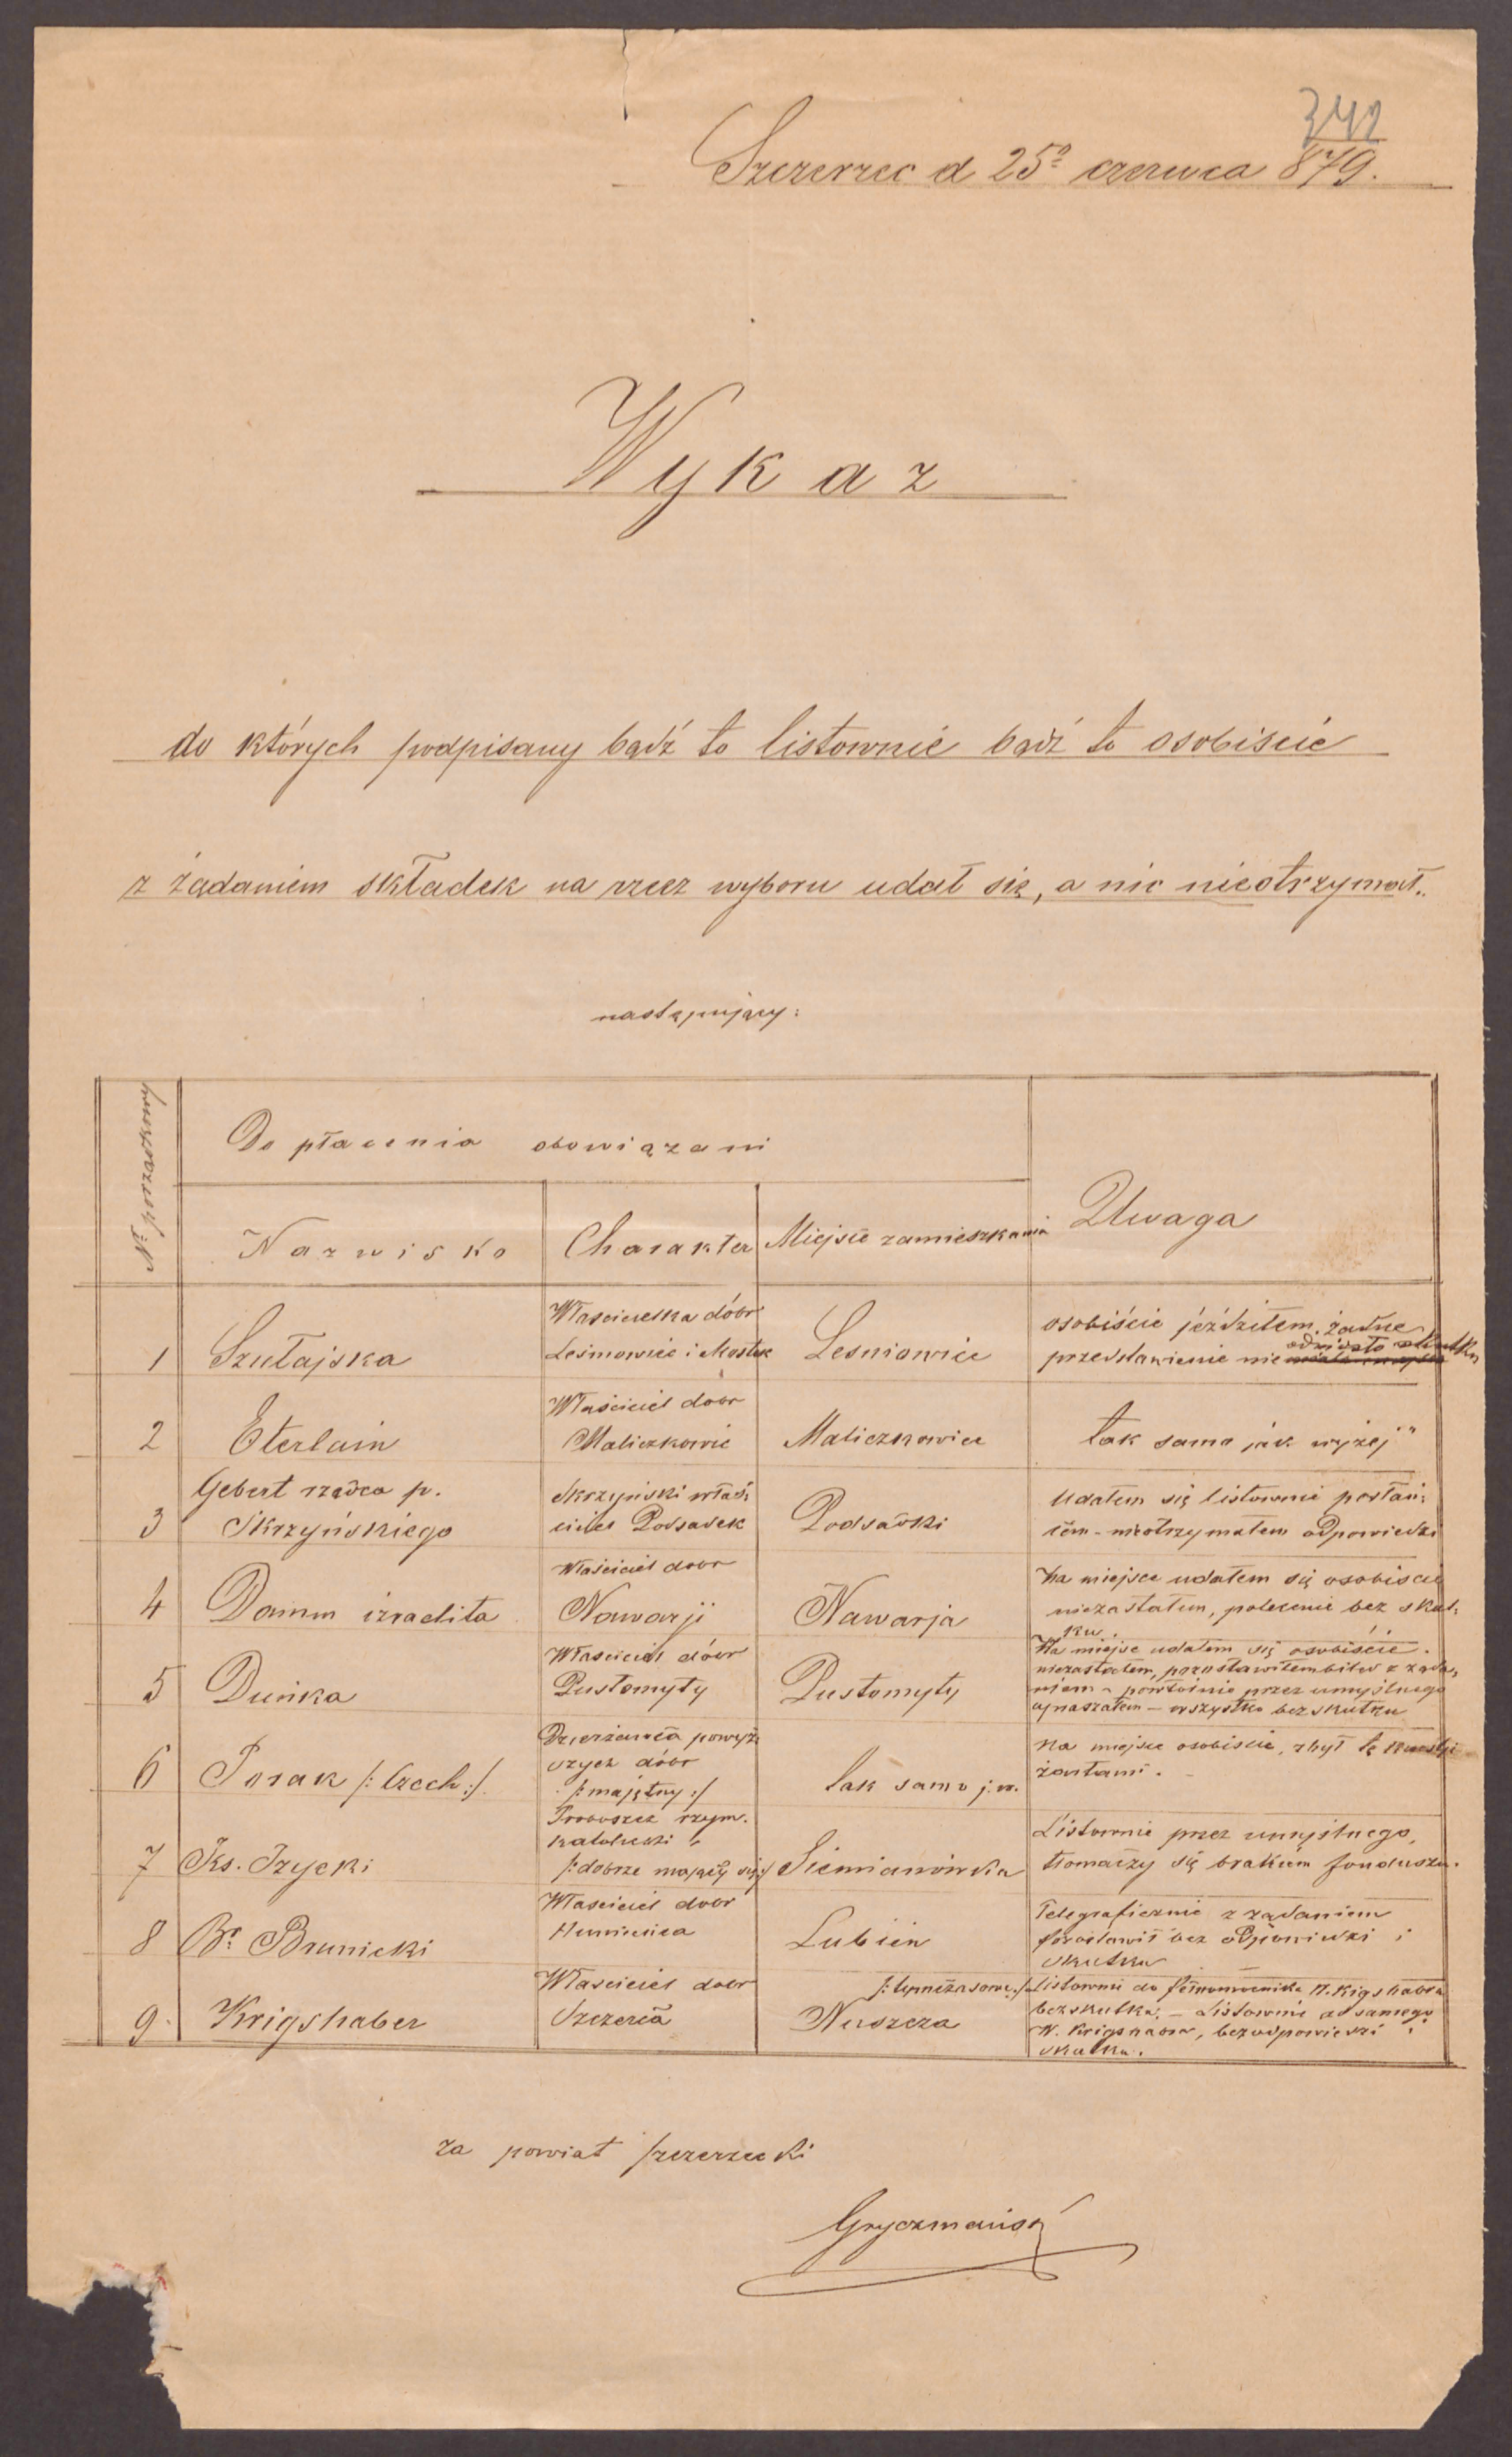 342
Szczerzec d 25º czerwca 879.
Wykaz
do których podpisany bądź to listownie bądź to osobiscie
z żądaniem składek na rzecz wyboru udał się, a nic nieotrzymał.
następujący:
Nº porządkowy
Do płacenia obowiązani
Uwaga
Nazwisko Charakter Miejsce zamieszkania
1 Szułajska Właścicielka dóbr Leśniowice i Mostek Lesniowice osobiście jeździłem, żadne przedstawienie nie odniosło skutku
2 Eterlain Właściciel dobr Maliczkowic Maliczkowice tak samo jak wyżej"
3 Gebert rządca p. Skrzyńskiego Skrzyński właściciel Podsadek Podsadki Udałem się listownie posłańcem - nieotrzymałem odpowiedzi
4 Damm izraelita Właściciel dobr Nawarji Nawarja Na miejsce udałem się osobiscie niezastałem, polecenie bez skutku.
5 Duńka Właściciel dóbr Pustomyty Pustomyty Na miejsce udałem się osobiście. niezastałem, pozostawiłem bilet z żądaniem - powtórnie przez umyślnego wszystko bez skutku
6 Porak /: Czech :/ Dzierżawca powyższych dóbr /: majętny :/ tak samo j. w. Na miejsce osobiscie, zbył tę żartami.
7 Ks. Izycki Proboszcz rzym. katolicki /: dobrze mający się :/ Siemianówka Listownie przez umyślnego, tłomaczy się brakiem funduszu.
8 Br. Brunicki Właściciel dobr Lubień Telegraficznie z żądaniem bez odpowiedzi i skutku
9. Krigshaber Właściciel dobr Szczerca Nuszcza Listownie do Pełnomocnika P. Krigshabra bezskutku. - Listownie do samego W. Krigshabra, bez odpowiedzi i skutku.
za powiat szczerzecki